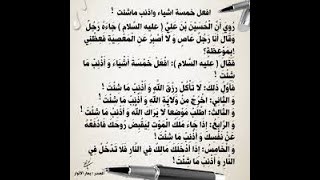 افعل خمسة اشياء واذنب ماشئت !
رُوِيَ أنَّ الْحُسَيْنَ بْنَ عَلِيٍّ ( عليه السَّلام ) جَاءَهُ رَجُلٌ
وَقَالَ أَنَا رَجُلٌ عَاصٍ وَ لَا أَصْبِرُ عَنِ الْمَعْصِيَةِ فَعِظْنِي
بِمَوْعِظَةٍ؟
فقال ( عليه السلام ) : افْعَلْ خَمْسَةَ أَشْيَاءَ وَ أَذْنِبْ مَا
شِئْتَ !
فَأَوَّلُ ذَلِكَ: لَا تَأْكُلْ رِزْقَ اللَّهِ وَ أَذْنِبْ مَا شِئْتَ !
وَ الثَّانِي: اخْرُجْ مِنْ وَلَايَةِ اللَّهِ وَ أَذْنِبْ مَا شِئْتَ !
وَ الثَّالِثُ: اطْلُبْ مَوْضِعاً لَا يَرَاكَ اللَّهُ وَ أَذْنِبْ مَا شِئْتَ !
وَ الرَّابِعُ: إِذَا جَاءَ مَلَكُ الْمَوْتِ لِيَقْبِضَ رُوحَكَ فَادْفَعْهُ
عَنْ نَفْسِكَ وَ أَذْنِبْ مَا شِئْتَ !
وَ الْخَامِسُ: إِذَا أَدْخَلَكَ مَالِكٌ فِي النَّارِ فَلَا تَدْخُلْ فِي
النَّارِ وَ أَذْنِبْ مَا شِئْتَ !
المصدر : بحار الانوار